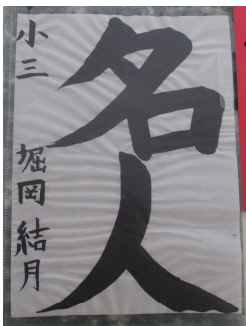 名人
小三 堀岡結月